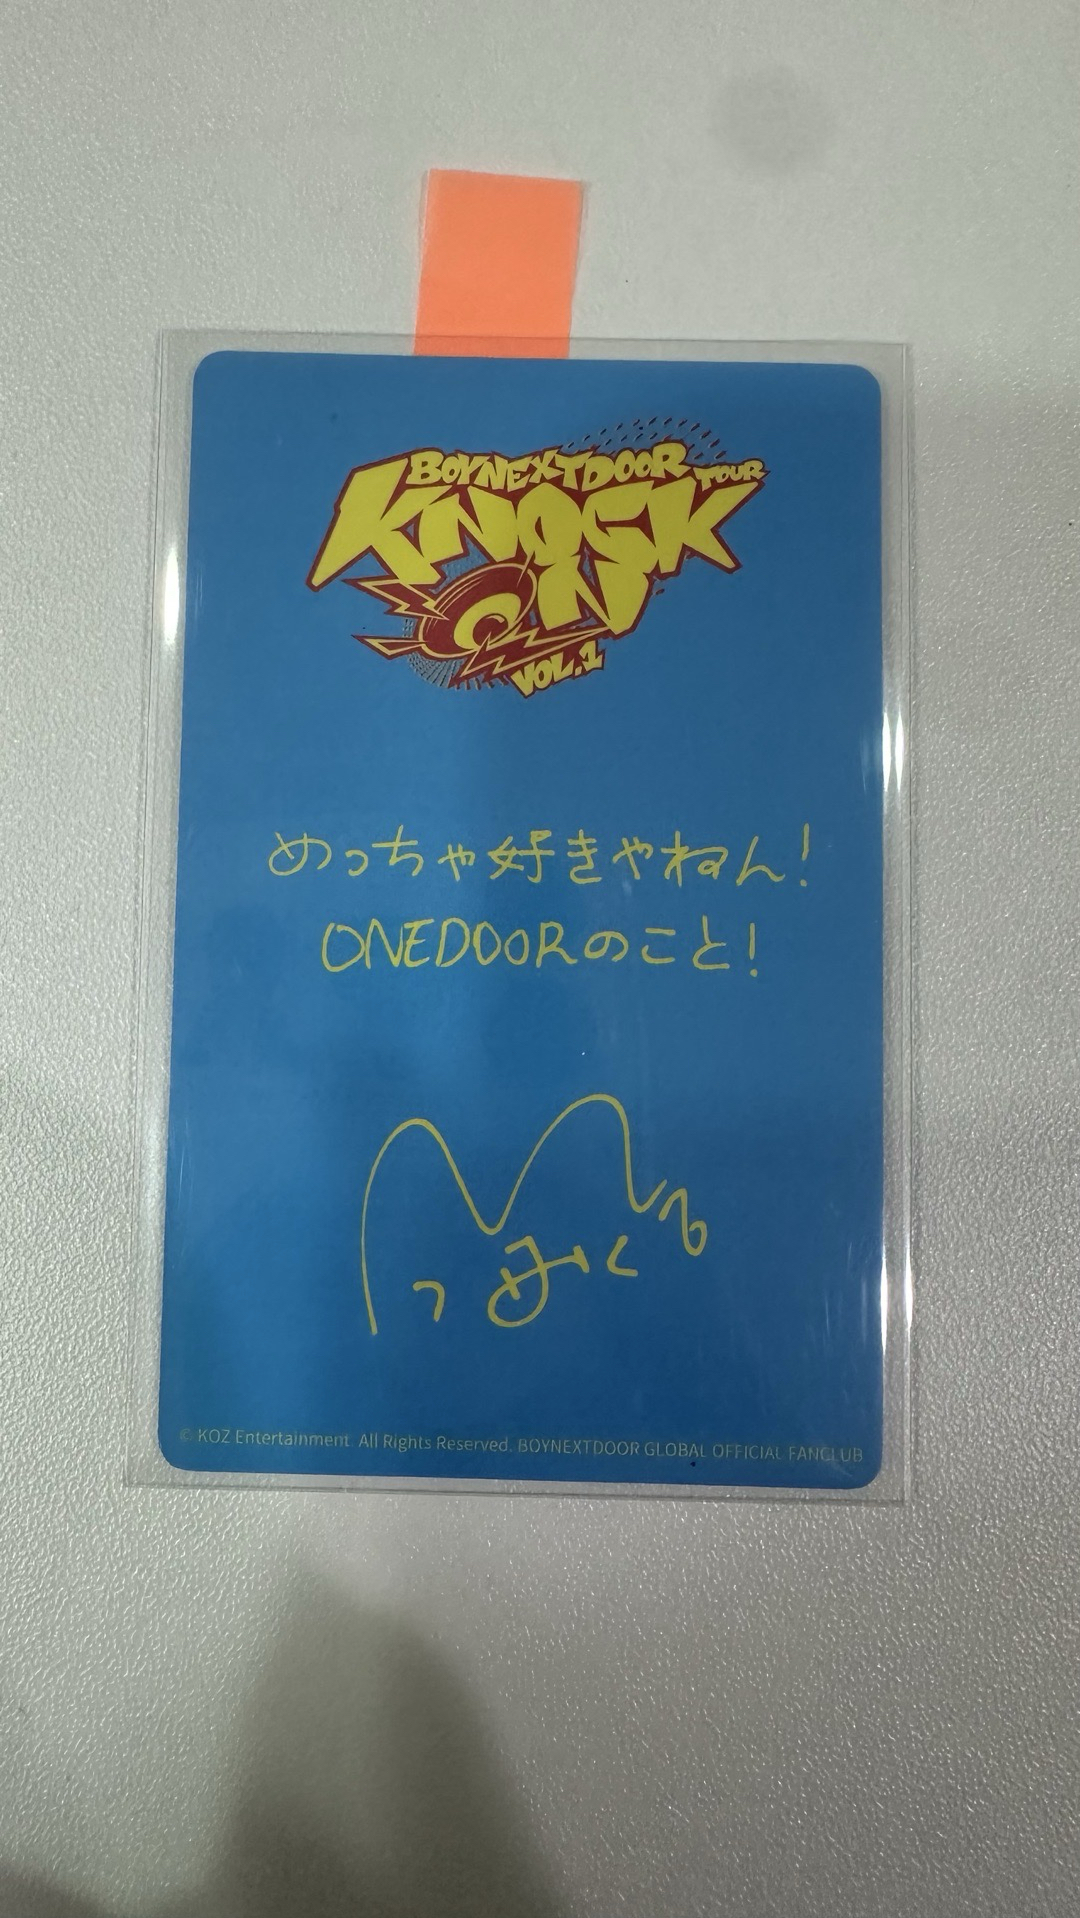 BOYNEXTDOOR TOUR
KNOCK
ON
VOL.1
めっちゃ好きやねん!
ONEDOORのこと!
© KOZ Entertainment. All Rights Reserved. BOYNEXTDOOR GLOBAL OFFICIAL FANCLUB